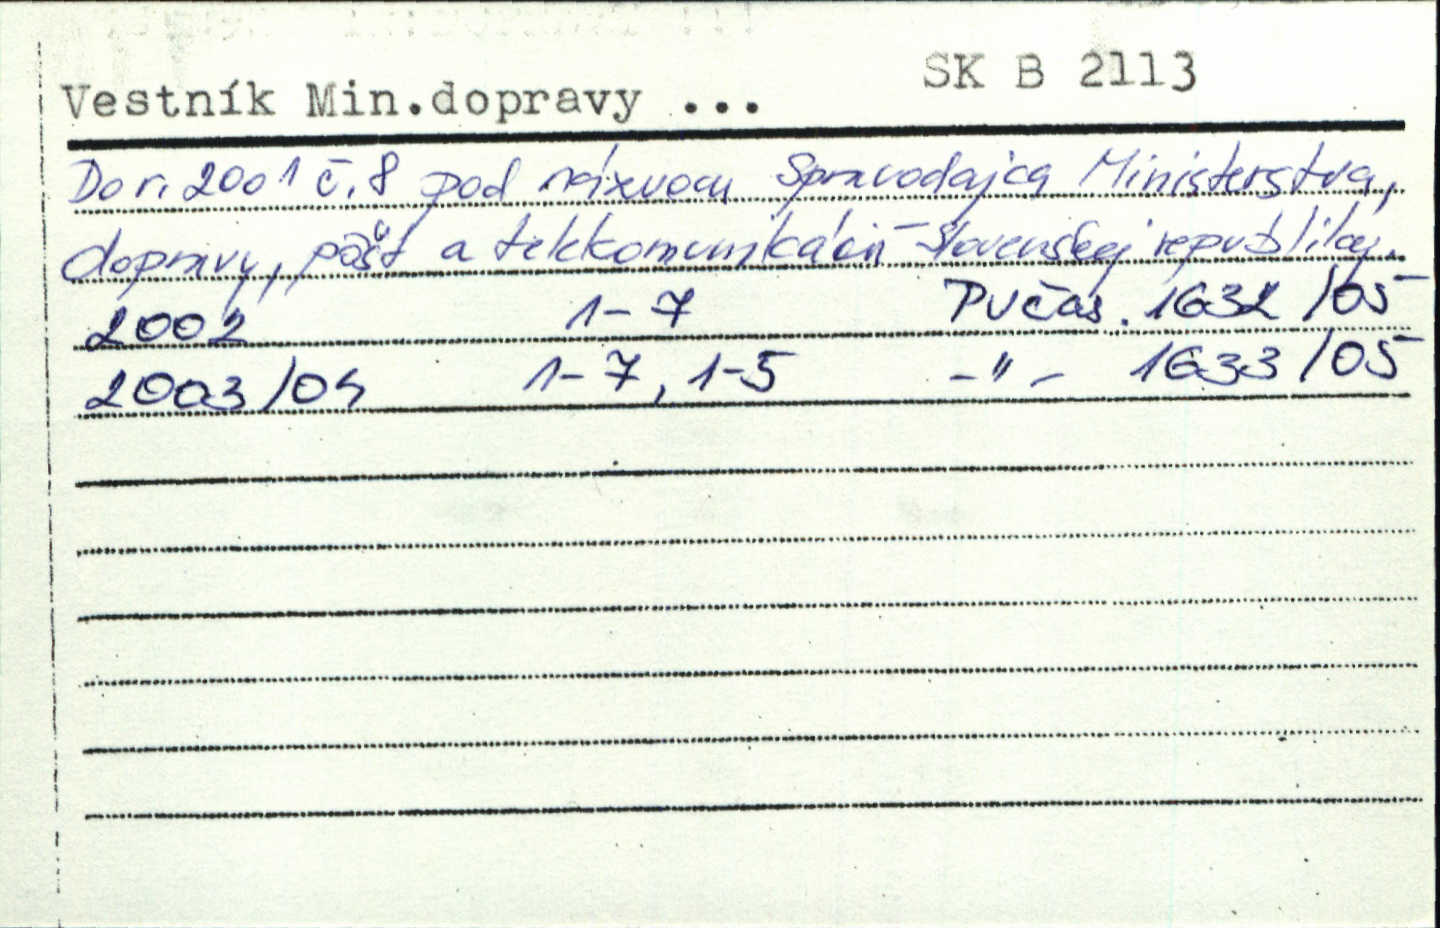 Vestník Min.dopravy ... SK B 2113
Do r. 2001 č. 8 pod názvom Spravodajca Ministerstva,
dopravy, pôšt a telekomunikácií Slovenskej republiky.
2002 1-7 PVčas. 1632/05
2003/04 1-7, 1-5 -"- 1633/05